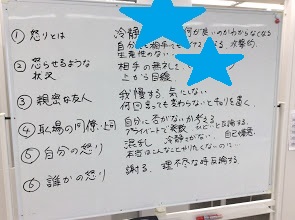 ① 怒りとは 冷静 何が良いのかわからなくなる
自分も相手も 攻撃的
生産性のない
② 怒らせるような状況 相手の無礼
上から目線
③ 親密な友人 我慢する、気にしない
何回言っても変わらないと
④ 職場の同僚・上司 自分に否がないか考える
プライベートで
⑤ 自分の怒り 混乱 冷静 自己嫌悪
本当はこんなことがしたくないのに
⑥ 誰かの怒り 謝る、理不尽な時反論する